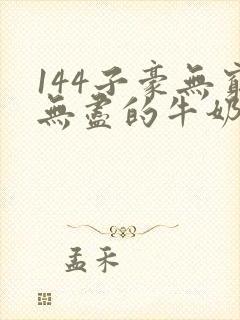 144子豪無窮
無盡的牛奶
孟禾